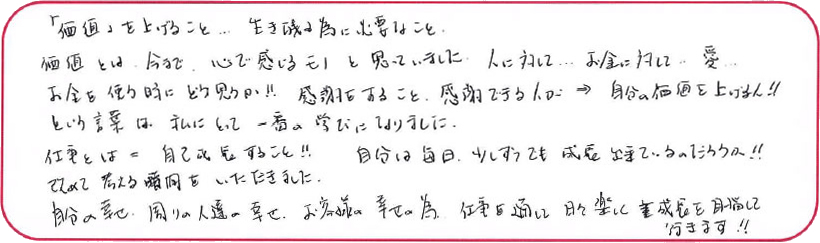 「価値」を上げること… 生き残る為に必要なこと。
価値とは、今まで、心で感じるモノと思っていました。人に対して… お金に対して… 愛…
お金を使う時にどう思うか!! 感謝をすること、感謝できる人が ⇒ 自分の価値を上げる人!!
という言葉は、私にとって一番の学びになりました。
仕事とは = 自己成長すること!! 自分は毎日、少しずつでも成長出来ているのだろうか!!
改めて考える瞬間をいただきました。
自分の幸せ、周りの人達の幸せ、お客様の幸せの為、仕事を通して日々楽しく成長を目指して
行きます!!